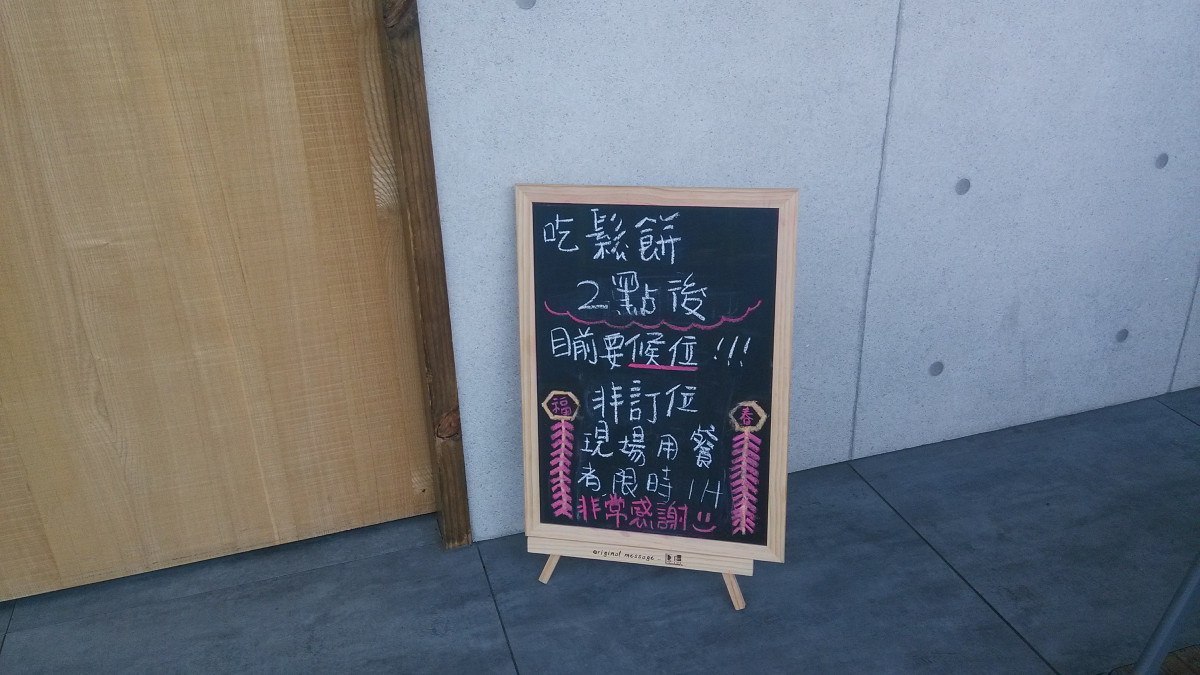 吃鬆餅
2點後
目前要候位!!!
非訂位
福
春
現場用餐
者限時1H
非常感謝
original message